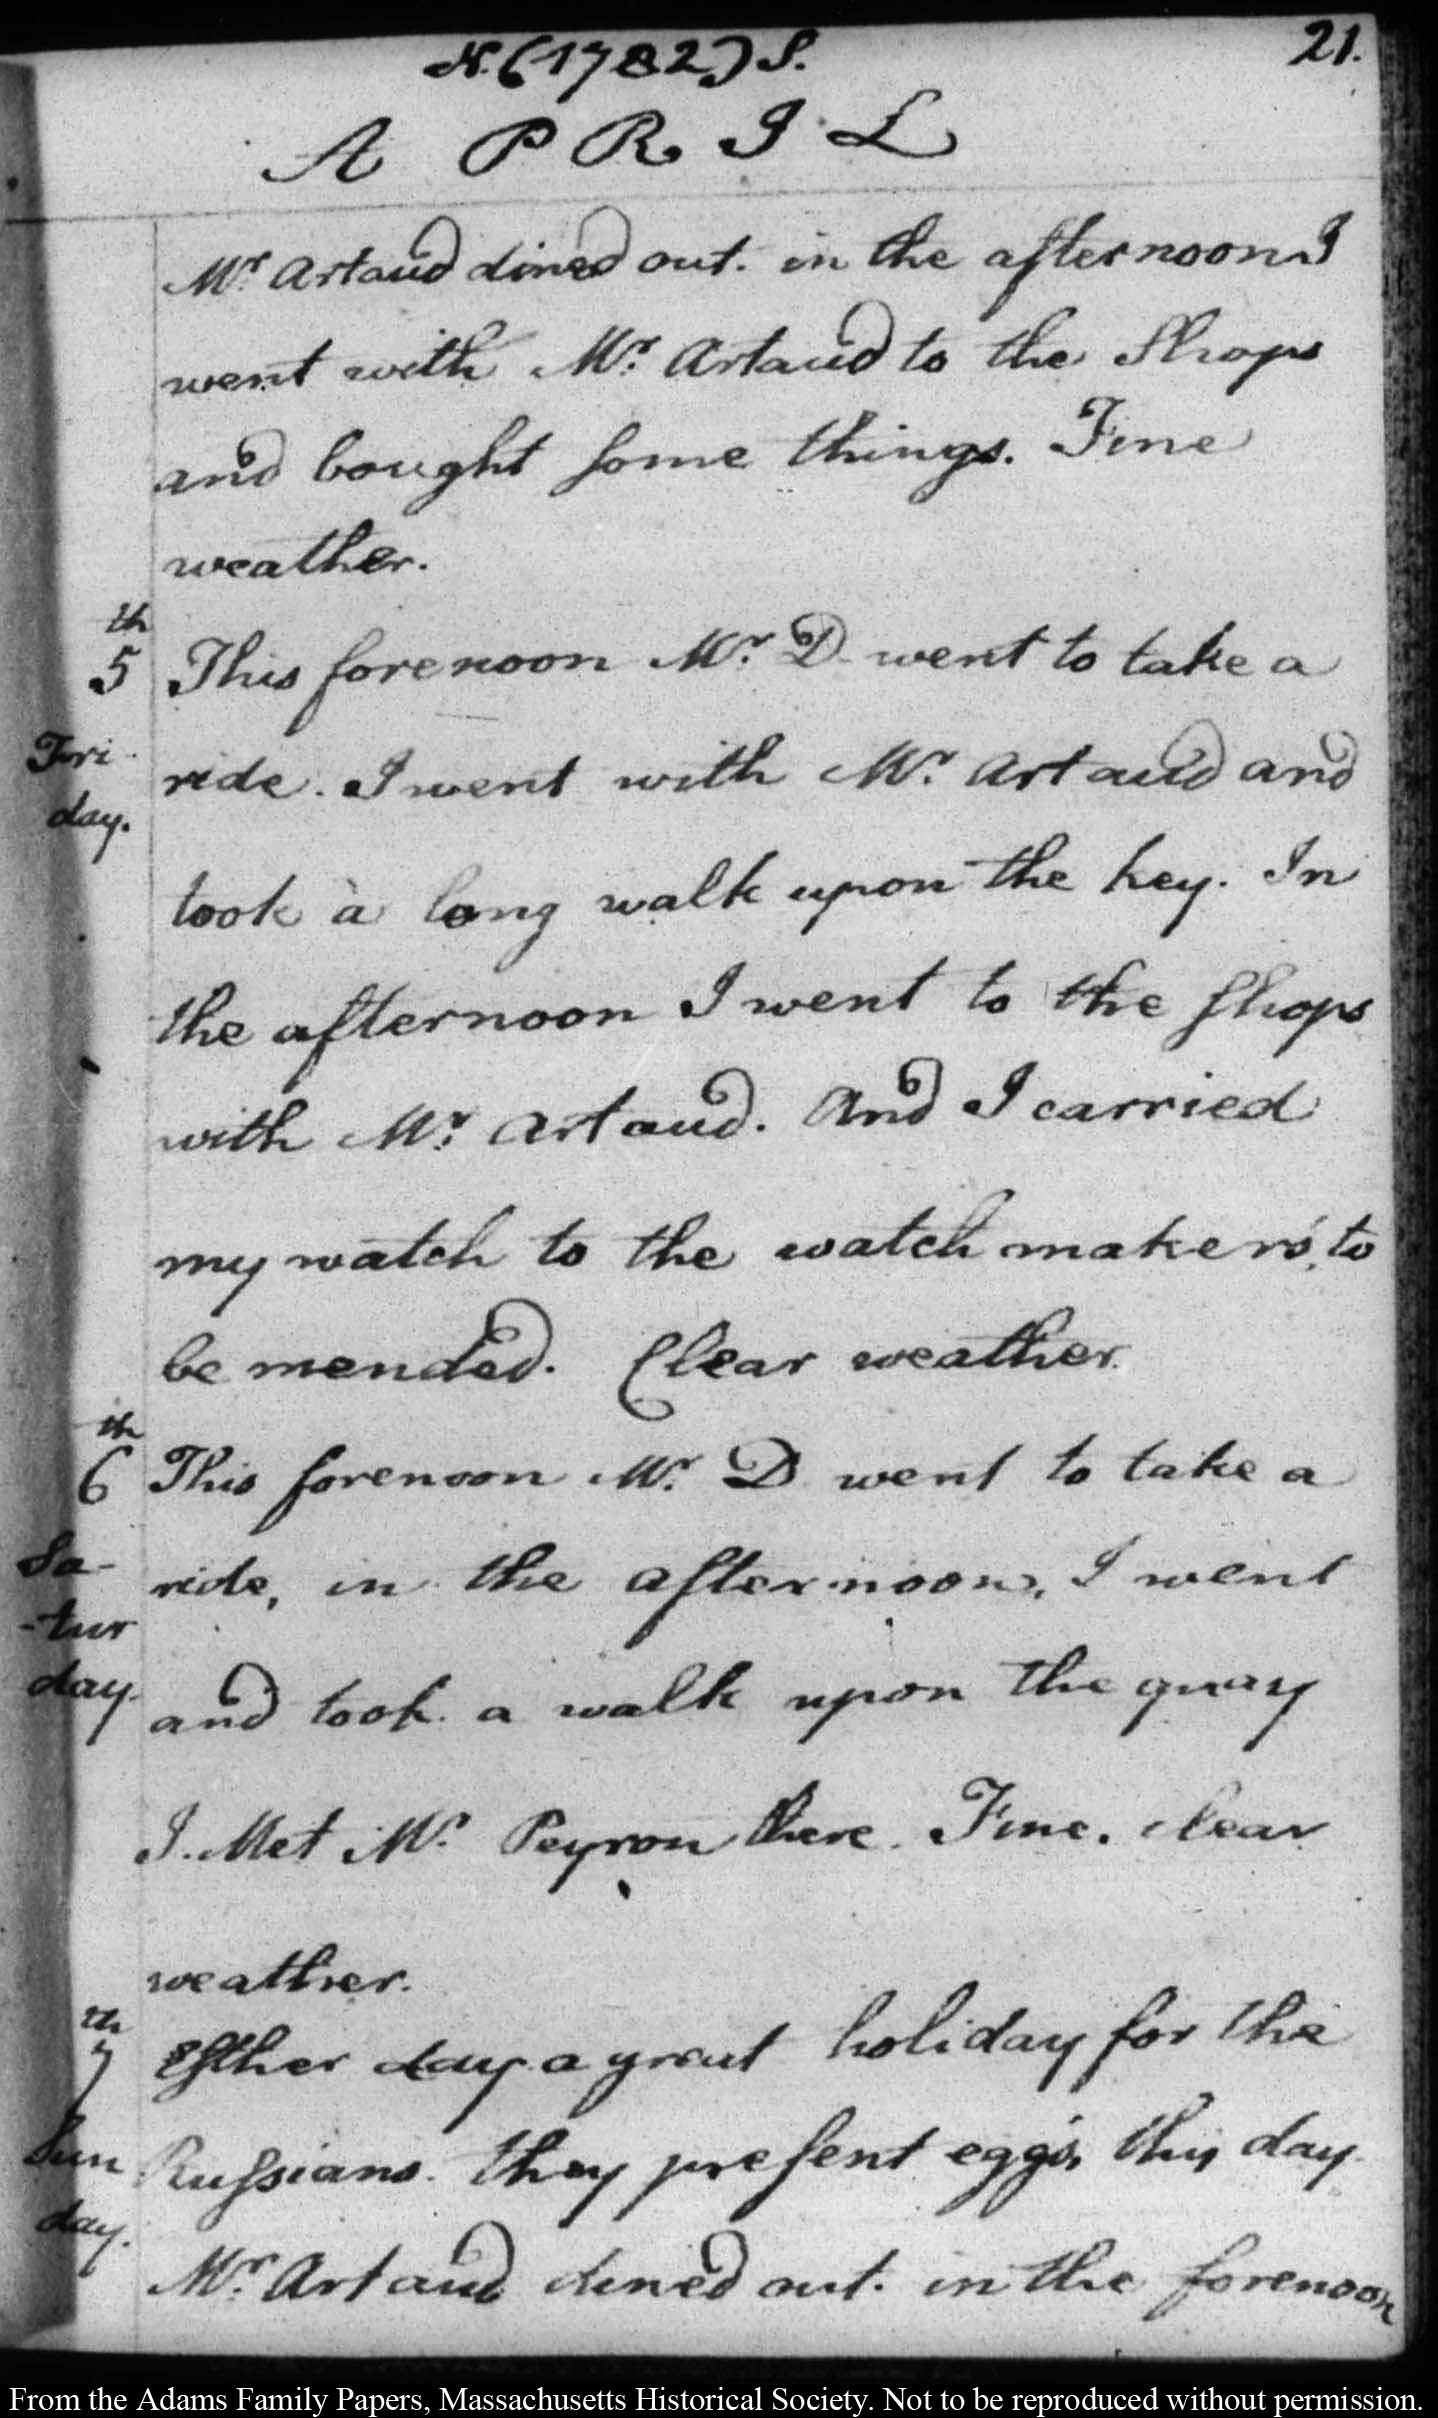 N. (1782) S.
21.
APRIL
Mr. Artaud dined out. in the afternoon I
went with Mr. Artaud to the Shops
and bought some things. Fine
weather.
th
5 This forenoon Mr. D. went to take a
Fri-
ride. I went with Mr. Artaud and
day.
took a long walk upon the key. In
the afternoon I went to the shops
with Mr. Artaud. And I carried
my watch to the watch maker's, to
be mended. Clear weather.
th
6 This forenoon Mr. D. went to take a
Sa-
ride, in the afternoon, I went
-tur
day.
and took a walk upon the quay
I. Met Mr. Peyron there. Fine. clear
weather.
th
7 Esther day a great holiday for the
Sun
Russians. they present eggs, this day.
day.
Mr. Artaud dined out. in the forenoon
From the Adams Family Papers, Massachusetts Historical Society. Not to be reproduced without permission.